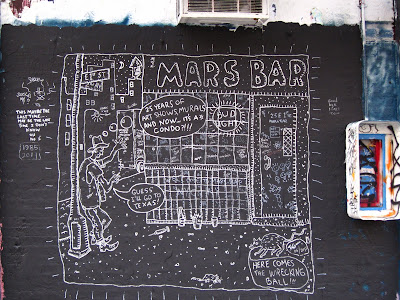 MARS BAR
25 YEARS OF
ART SHOWS, MURALS
AND NOW... IT'S A
CONDO?!!!
BUD
LIGHT
THIS MAY BE THE
LAST TIME
MAY BE THE LAST
TIME I DON'T
KNOW
GUESS
I'LL GO TO
TEXAS!
HERE COMES
THE WRECKING
BALL!!!